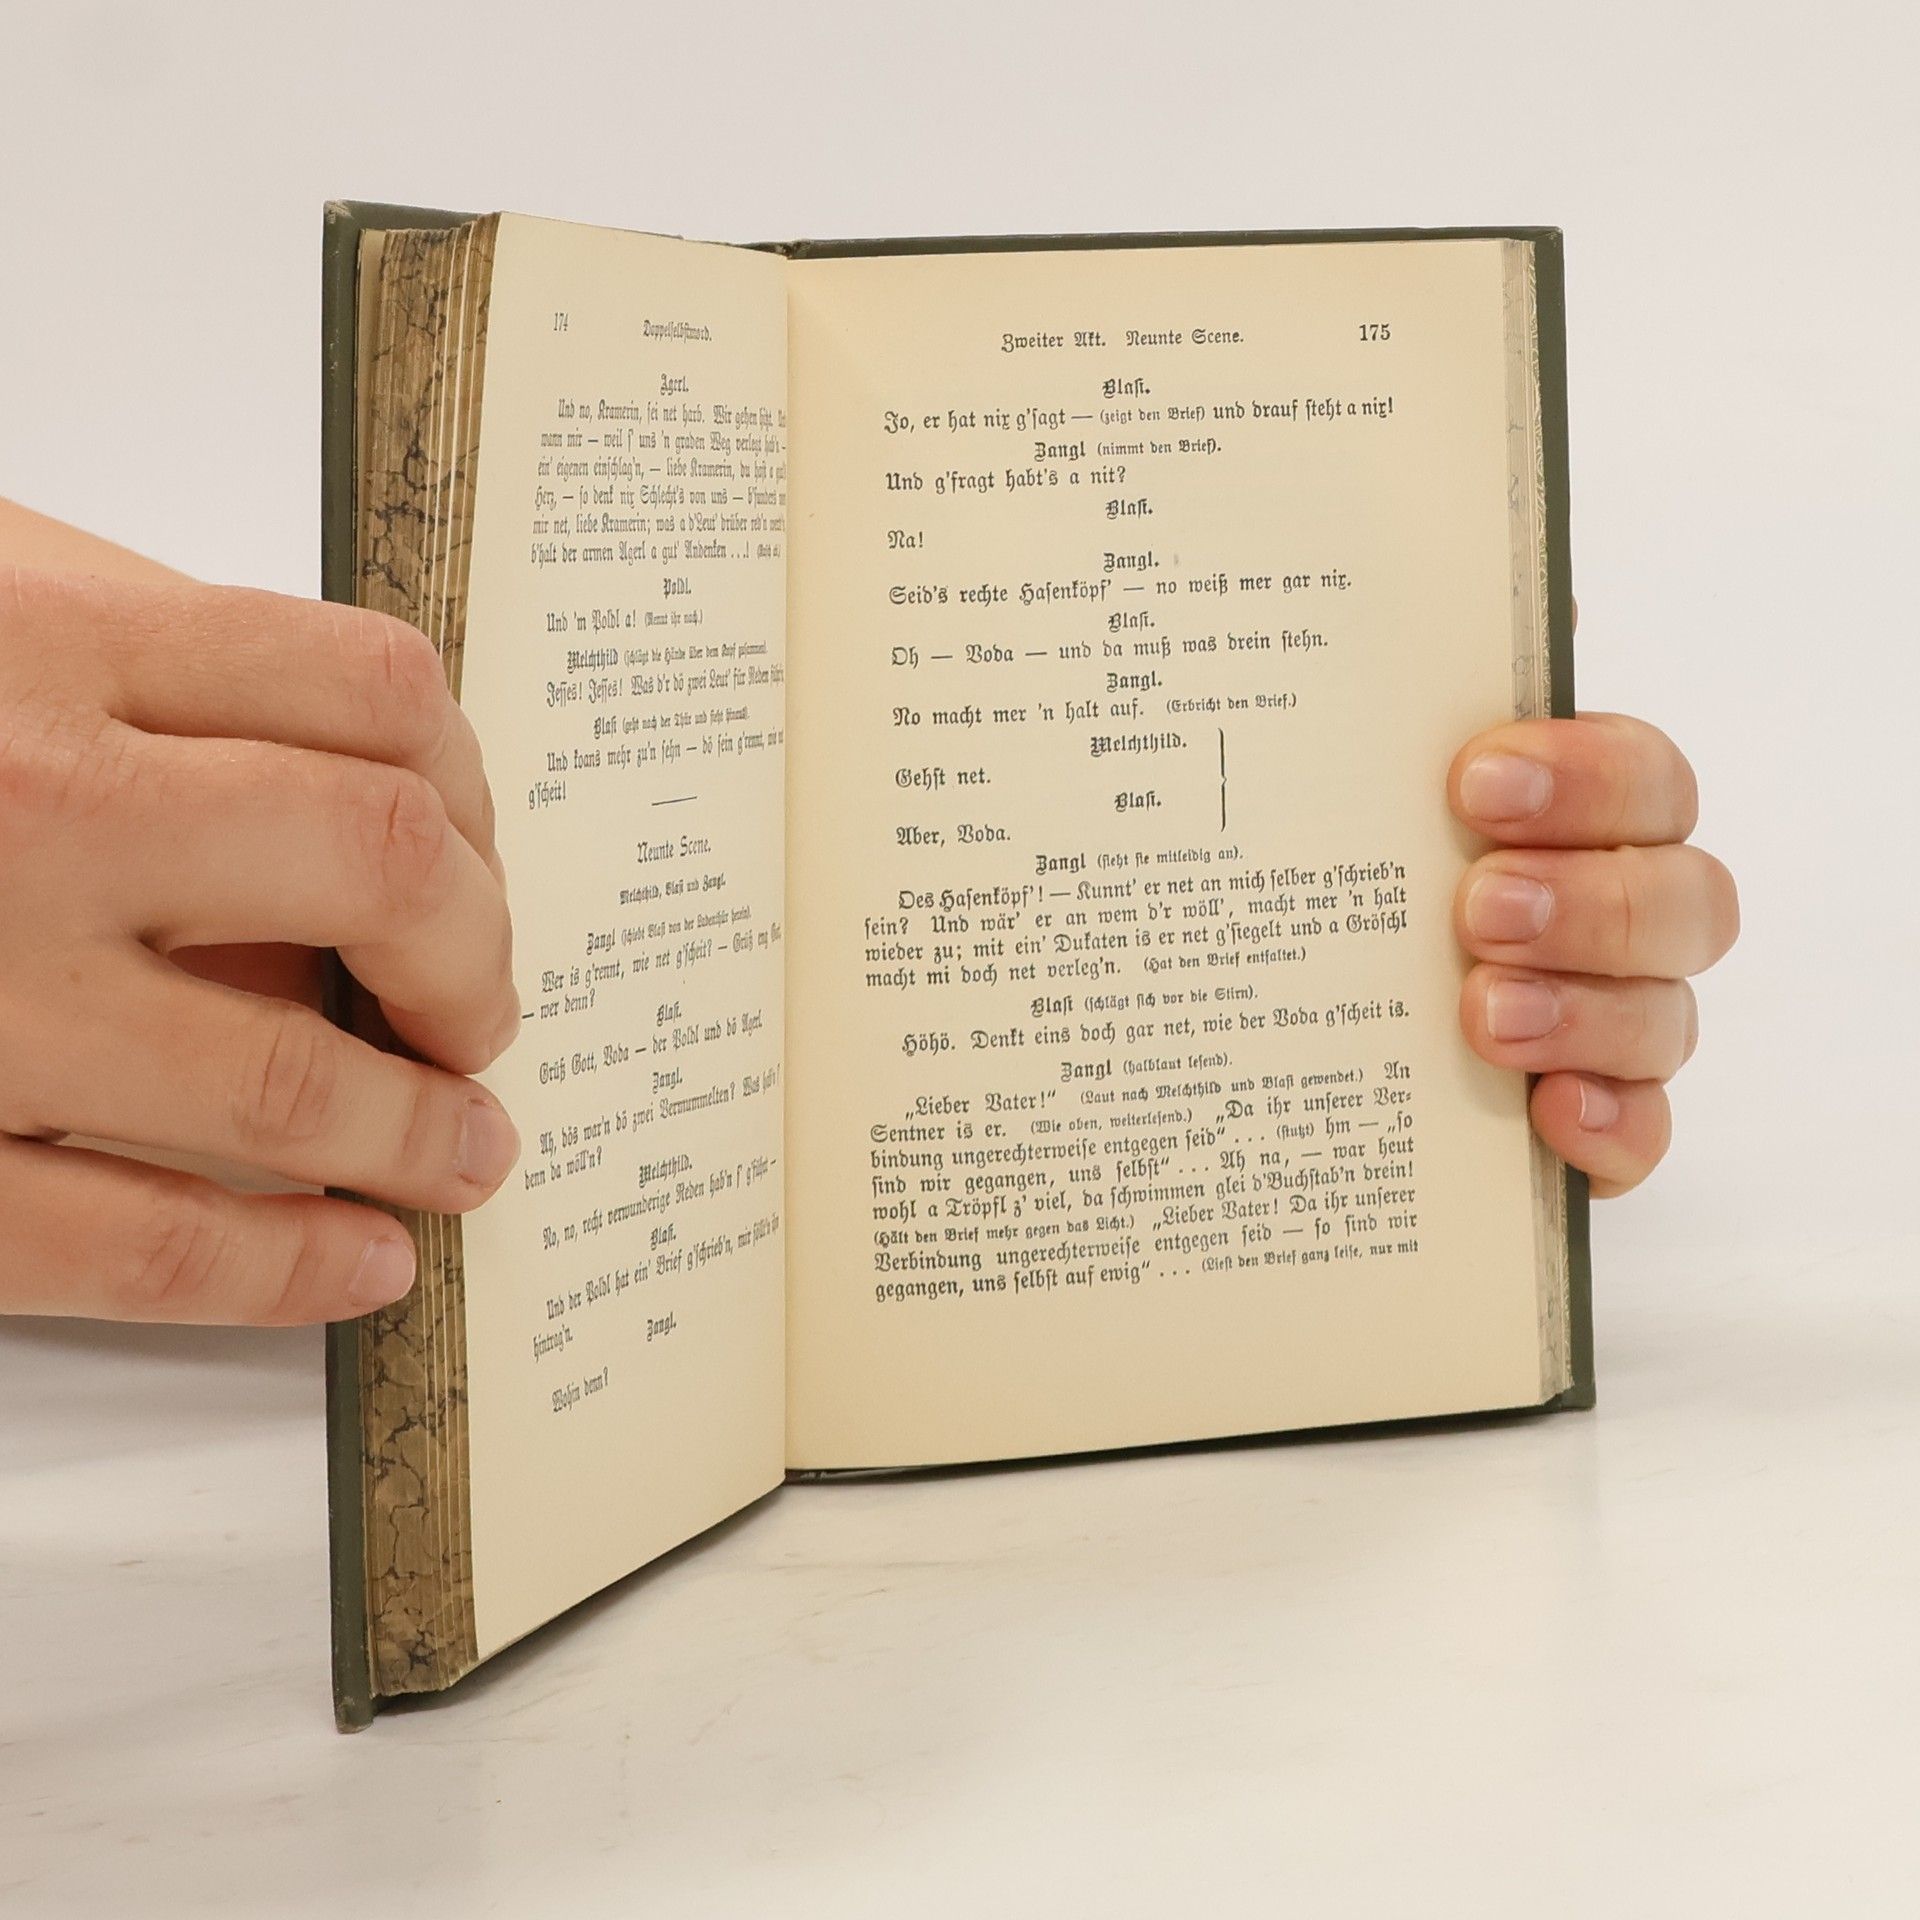 174
Doppelselbstmord.
Agerl.
Und no, Kramerin, sei net harb. Wir gehen hitzt.
wann mir — weil s' uns 'n graden Weg verlegt hab'n —
ein' eigenen einschlag'n, — liebe Kramerin, du hast a gut's
Herz, — so denk nix Schlecht's von uns — b'sunders von
mir net, liebe Kramerin; was a d'Leut' drüber red'n werd'n
b'halt der armen Agerl a gut' Andenken . . .! (Rasch ab.)
Poldl.
Und 'm Poldl a! (Rennt ihr nach.)
Melchthild (schlägt die Hände über dem Kopf zusammen).
Jesses! Jesses! Was d'r dö zwei Leut' für Reden führ'n
Blasi (geht nach der Thür und sieht hinaus).
Und koans mehr zu'n sehn — dö sein g'rennt, wie net
g'scheit!
Neunte Scene.
Melchthild, Blasi und Zangl.
Zangl (schiebt Blasi von der Ladenthür herein).
Wer is g'rennt, wie net g'scheit? — Grüß eng Gott
— wer denn?
Blasi.
Grüß Gott, Voda — der Poldl und dö Agerl.
Zangl.
Ah, dös war'n dö zwei Vermummelten? Was hab'n s'
denn da wöll'n?
Melchthild.
No, no, recht verwunderige Reden hab'n s' g'führt —
Blasi.
Und der Poldl hat ein' Brief g'schrieb'n, mir söll'n ihn
hintrag'n.
Zangl.
Wohin denn?
Zweiter Akt. Neunte Scene. 175
Blasi.
Jo, er hat nix g'sagt — (zeigt den Brief) und drauf steht a nix!
Zangl (nimmt den Brief).
Und g'fragt habt's a nit?
Blasi.
Na!
Zangl.
Seid's rechte Hasenköpf' — no weiß mer gar nix.
Blasi.
Oh — Voda — und da muß was drein stehn.
Zangl.
No macht mer 'n halt auf. (Erbricht den Brief.)
Melchthild.
Gehst net.
Blasi.
Aber, Voda.
Zangl (sieht sie mitleidig an).
Oes Hasenköpf'! — Kunnt' er net an mich selber g'schrieb'n
sein? Und wär' er an wem d'r wöll', macht mer 'n halt
wieder zu; mit ein' Dukaten is er net g'siegelt und a Gröschl
macht mi doch net verleg'n. (Hat den Brief entfaltet.)
Blasi (schlägt sich vor die Stirn).
Höhö. Denkt eins doch gar net, wie der Voda g'scheit is.
Zangl (halblaut lesend).
„Lieber Vater!“ (Laut nach Melchthild und Blasi gewendet.) An
Sentner is er. (Wie oben, weiterlesend.) „Da ihr unserer Ver-
bindung ungerechterweise entgegen seid“ . . . (stutzt) hm — „so
sind wir gegangen, uns selbst“ . . . Ah na, — war heut
wohl a Tröpfl z' viel, da schwimmen glei d'Buchstab'n drein!
(Hält den Brief mehr gegen das Licht.) „Lieber Vater! Da ihr unserer
Verbindung ungerechterweise entgegen seid — so sind wir
gegangen, uns selbst auf ewig“ . . . (Liest den Brief ganz leise, nur mit